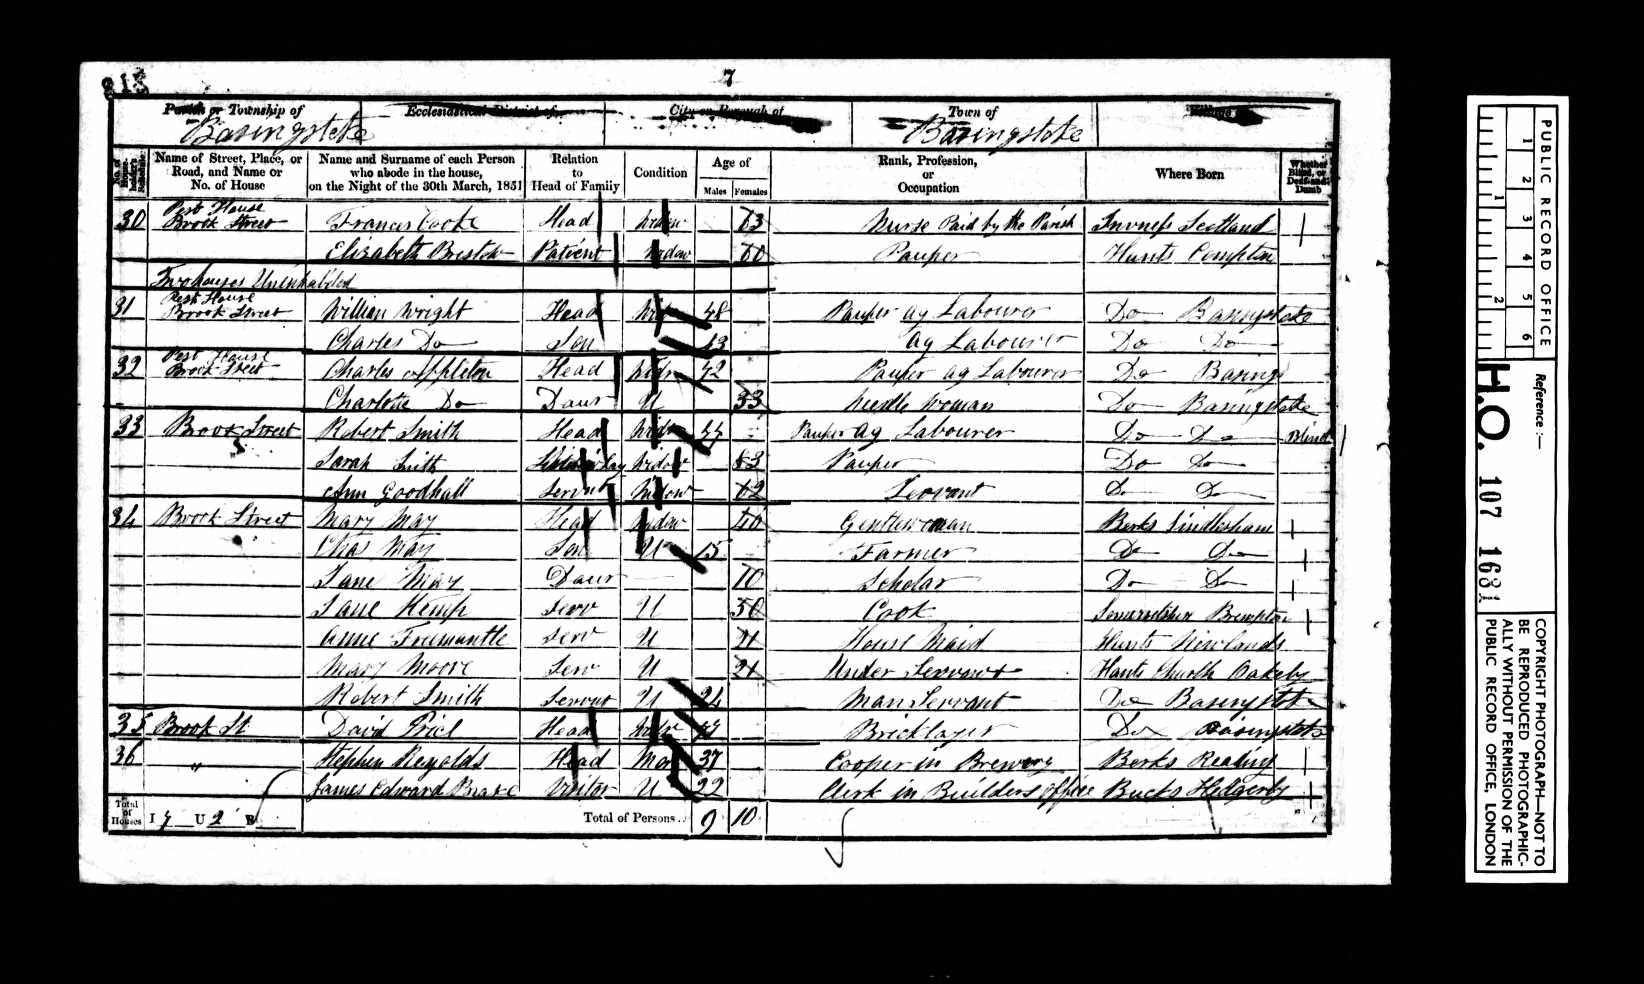 813
7
Parish or Township of Ecclesiastical District of City or Borough of Town of Village of
Basingstoke Basingstoke
No. of House-holder's Schedule Name of Street, Place, or Road, and Name or No. of House Name and Surname of each Person who abode in the house, on the Night of the 30th March, 1851 Relation to Head of Family Condition Age of Males Females Rank, Profession, or Occupation Where Born Whether Blind, or Deaf-and-Dumb
30 Pest House Brook Street Frances Cooke Head Widow 63 Nurse Paid by the Parish Inverness Scotland
Elizabeth Bristow Patient Widow 60 Pauper Hants Compton
Two houses Uninhabited
31 Pest House Brook Street William Wright Head Widr 48 Pauper Ag Labourer Do Basingstoke
Charles Do Son 13 Ag Labourer Do Do
32 Pest House Brook Street Charles Appleton Head Widr 72 Pauper Ag Labourer Do Basing
Charlotte Do Daur U 33 Needle Woman Do Basingstoke
33 Brook Street Robert Smith Head Widr 77 Pauper Ag Labourer Do Do Blind
Sarah Smith Widow 83 Pauper Do Do
Ann Goodhall Servnt Widow 62 Servant Do Do
34 Brook Street Mary May Head Widow 40 Gentlewoman Berks Sindlesham
Chas May Son U 15 Farmer Do Do
Jane May Daur 10 Scholar Do Do
Jane Kemp Serv U 50 Cook Somersetshire Brempton
Anne Freemantle Serv U 21 House Maid Hants Newlands
Mary Moore Serv U 21 Under Servant Hants Church Oakeley
Robert Smith Servnt U 24 Man Servant Do Basingstoke
35 Brook St David Price Head Widr Bricklayer Do Basingstoke
36 " Stephen Reynolds Head Mar 37 Cooper in Brewery Berks Reading
James Edward Visitor U 22 Clerk in Builders office Bucks Hedgerly
Total of Houses I 7 U 2 B Total of Persons.. 9 10
PUBLIC RECORD OFFICE
1 2 3 4 5 6
1 2
Reference:—
H.O. 107 1681
COPYRIGHT PHOTOGRAPH—NOT TO
BE REPRODUCED PHOTOGRAPHIC-
ALLY WITHOUT PERMISSION OF THE
PUBLIC RECORD OFFICE, LONDON